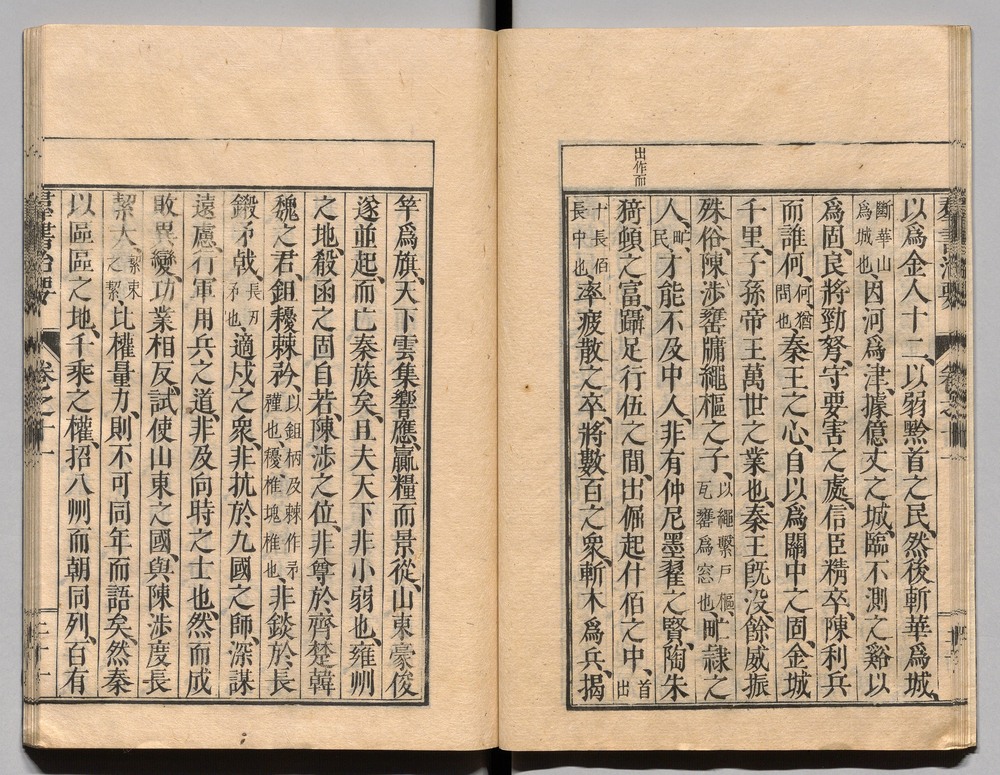 以爲金人十二、以弱黔首之民、然後斬華爲城、
斷華山爲城也、因河爲津、據億丈之城、臨不測之谿以
爲固、良將勁弩、守要害之處、信臣精卒、陳利兵
而誰何、何猶問也、秦王之心、自以爲關中之固、金城
千里、子孫帝王萬世之業也、秦王既沒、餘威振
殊俗、陳涉甕牖繩樞之子、以繩繫戶樞、瓦甕爲窓也、甿隷之
人、甿民、才能不及中人、非有仲尼墨翟之賢、陶朱
出作而
猗頓之富、躡足行伍之間、出倔起什佰之中、首出
十長佰長中也、率疲散之卒、將數百之衆、斬木爲兵、揭
竿爲旗、天下雲集響應、贏糧而景從、山東豪俊
遂並起、而亡秦族矣、且夫天下非小弱也、雍州
之地、殽函之固自若、陳涉之位、非尊於齊楚韓
魏之君、鉏耰棘矜、以鉏柄及棘作矛矜也、耰椎塊椎也、非錟於長
鎩矛戟、長刃矛也、適戍之衆、非抗於九國之師、深謀
遠慮、行軍用兵之道、非及向時之士也、然而成
敗異變、功業相反、試使山東之國、與陳涉度長
絜大、絜束之絜、比權量力、則不可同年而語矣、然秦
以區區之地、千乘之權、招八州而朝同列、百有
群書治要 卷之十一 二十一